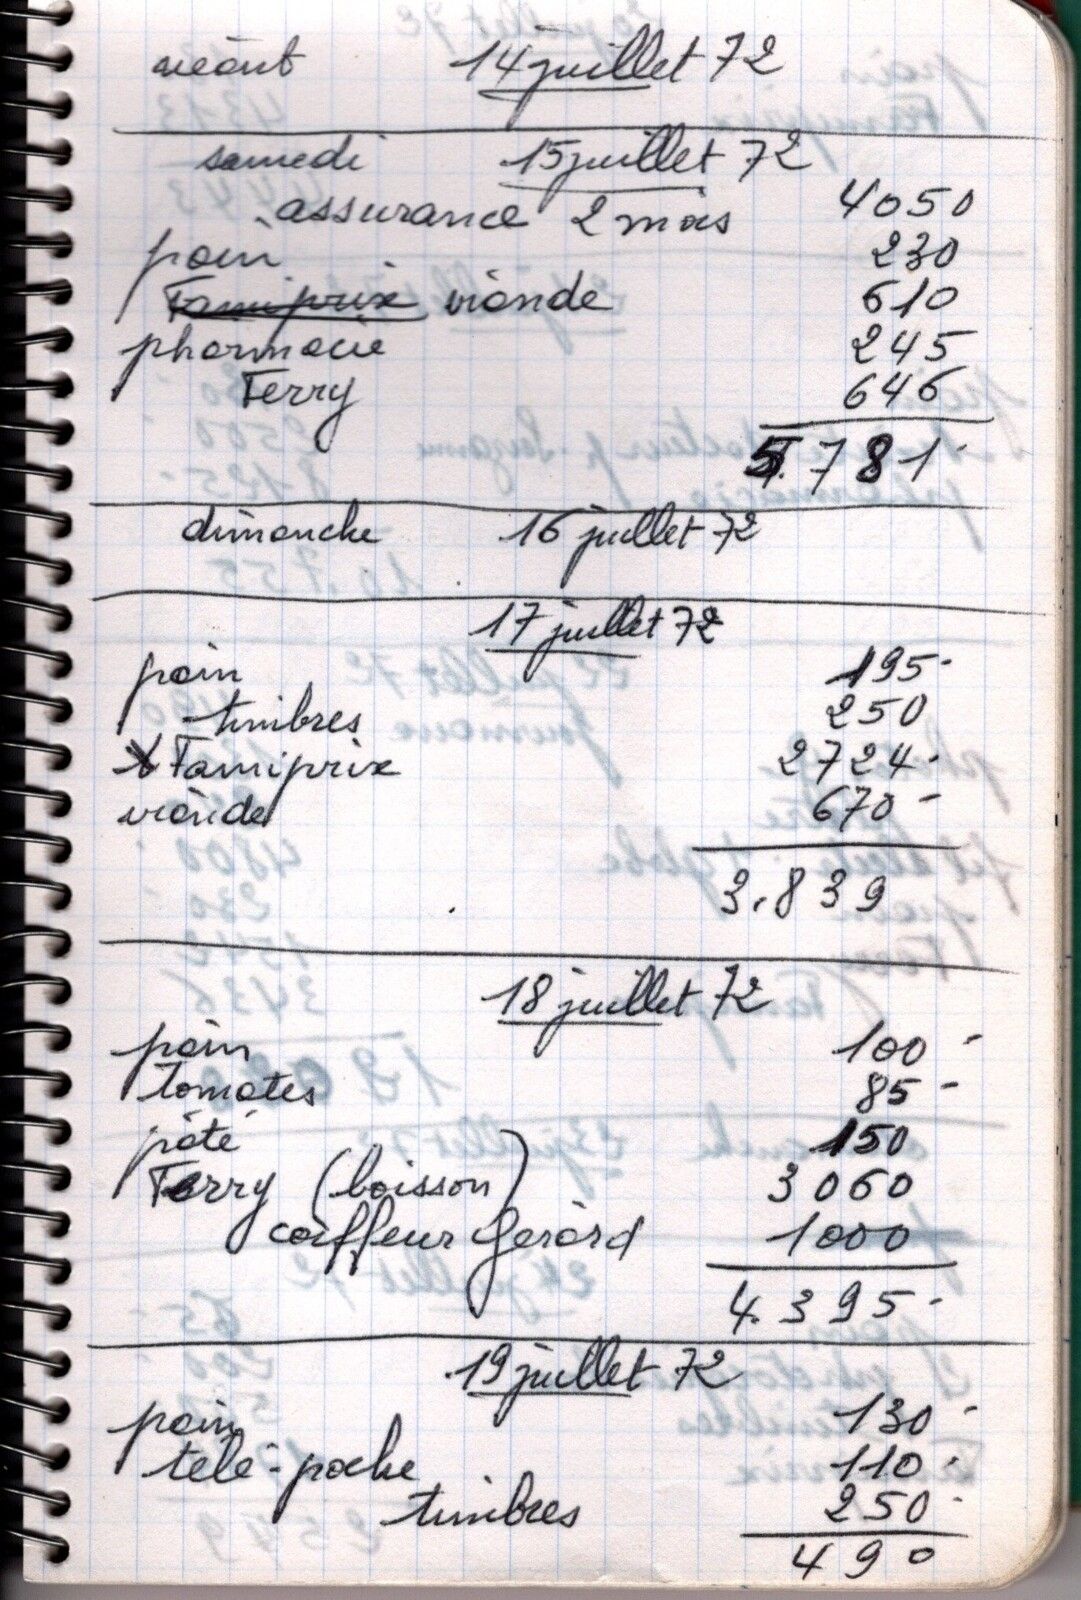 néant 14 juillet 72
samedi 15 juillet 72
assurance 2 mois 4050
pain 230
Famiprix viande 610
pharmacie 245
Ferry 646
5.781
dimanche 16 juillet 72
17 juillet 72
pain 195
timbres 250
Famiprix 2724
viande 670
3.839
18 juillet 72
pain 100
tomates 85
pâté 150
Ferry (boisson) 3060
coiffeur Gérard 1000
4.395
19 juillet 72
pain 130
télé-poche 110
timbres 250
490